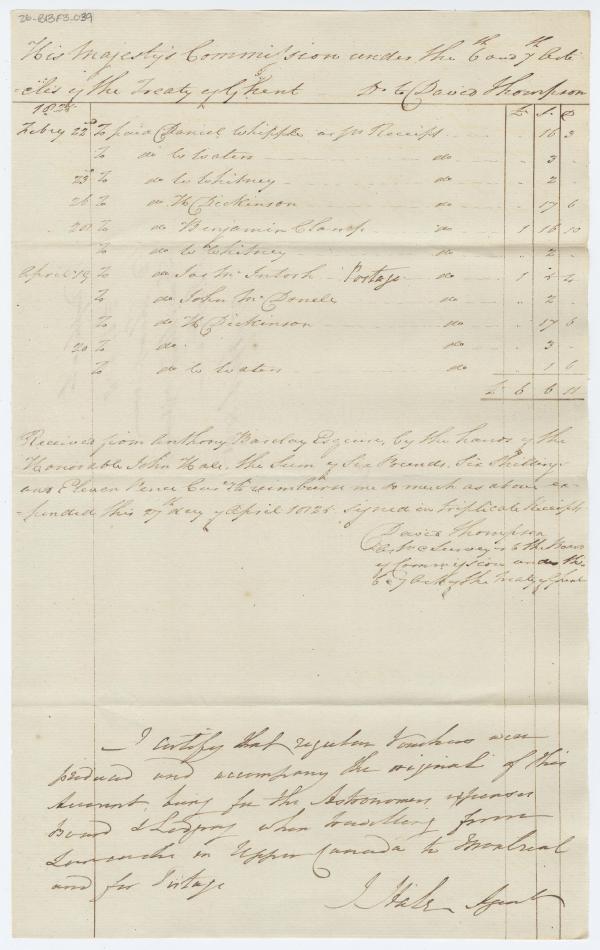 26-B3F3-039
His Majesty's Commission under the 6th and 7th Arti
cles of the Treaty of Ghent Dr to David Thompson
1825 £ S. D
Febry 22d To paid Daniel Whipple as pr Receipt 16 3
To do C Waters do 3
23d To do C Whitney do 2
26 To do H Dickinson do 17 6
28 To do Benjamin do 1 16 10
To do C Whitney do 2
April 19 To do Jas McIntosh Postage do 1 4
To do John McDonell do 2
To do H Dickinson do 17 6
20 To do do 3
To do C Waters do 1 6
£ 6 6 11
Received from Anthony Barclay Esquire, by the hands of the
Honorable John Hale, the Sum of Six Pounds, Six Shillings
and Eleven Pence Curcy to reimburse me so much as above ex-
-pended this 27th day of April 1825 Signed in triplicate Receipts
David Thompson
Astr & Surveyor to the Board
of Commission under the
6 & 7 Art of the Treaty of Ghent
I certify that regular Vouchers were
produced and accompany the original of this
Account, being for the Astronomers expenses
Board & Lodging when travelling from
in Upper Canada to Montreal
and for Postage
J Hale Agent